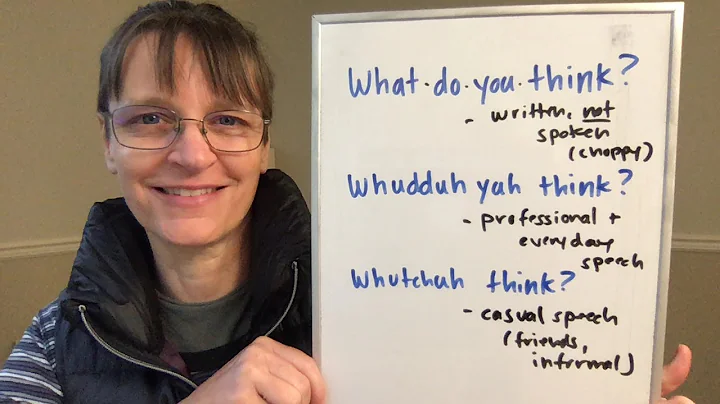 What·do·you·think?
- written, not
spoken
(choppy)
Whudduh yah think?
- professional +
everyday
speech
Whutchuh think?
- casual speech
(friends,
informal)